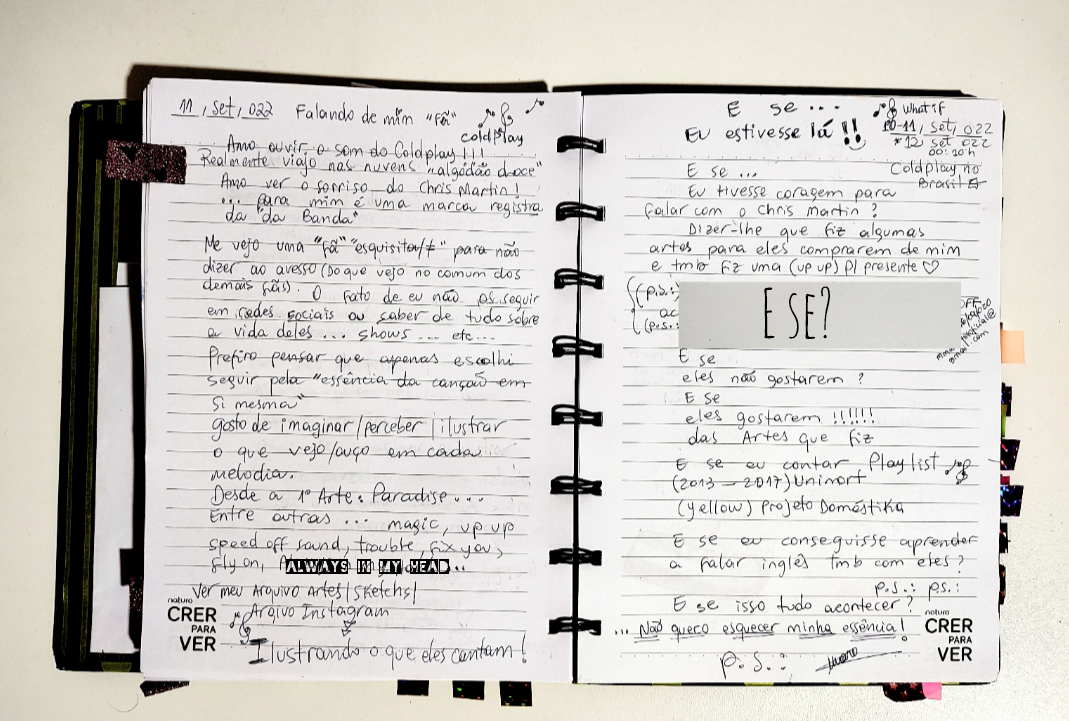 11, set, 022 Falando de mim "fã"
coldplay
Amo ouvir o som do Coldplay!!!
Realmente viajo nas nuvens "algodão doce"
Amo ver o sorriso do Chris Martin!
... para mim é uma marca registra
da "da Banda"
Me vejo uma "fã" "esquisita/≠" para não
dizer ao avesso (Do que vejo no comum dos
demais fãs). O fato de eu não os seguir
em redes sociais ou saber de tudo sobre
a vida deles... shows... etc...
Prefiro pensar que apenas escolhi
seguir pela "essência da canção em
si mesma"
Gosto de imaginar/perceber/ilustrar
o que vejo/ouço em cada
melodia.
Desde a 1ª Arte: Paradise...
Entre outras... magic, up up
speed off sound, trouble, fix you,
fly on, ALWAYS IN MY HEAD...
Ver meu Arquivo Artes/Sketchs/
Arqivo Instagram
Ilustrando o que eles cantam!
natura
CRER
PARA
VER
E se...
Eu estivesse lá!!
What if
10-11, set, 022
*12, set 022
00:20h
Coldplay no
Brasil
E se...
Eu tivesse coragem para
falar com o Chris Martin?
Dizer-lhe que fiz algumas
artes para eles comprarem de mim
e tmb fiz uma (up up) p/ presente ♡
(p.s.:
E SE?
ac
(p.s.:
gmail.com
E se
eles não gostarem?
E se
eles gostarem!!!!!!
das Artes que fiz
E se eu contar Playlist
(2013 - 2017) Uninort
(yellow) Projeto Doméstika
E se eu conseguisse aprender
a falar inglês tmb com eles?
p.s.: ps.:
E se isso tudo acontecer?
... Não quero esquecer minha essência!
p.s.:
natura
CRER
PARA
VER